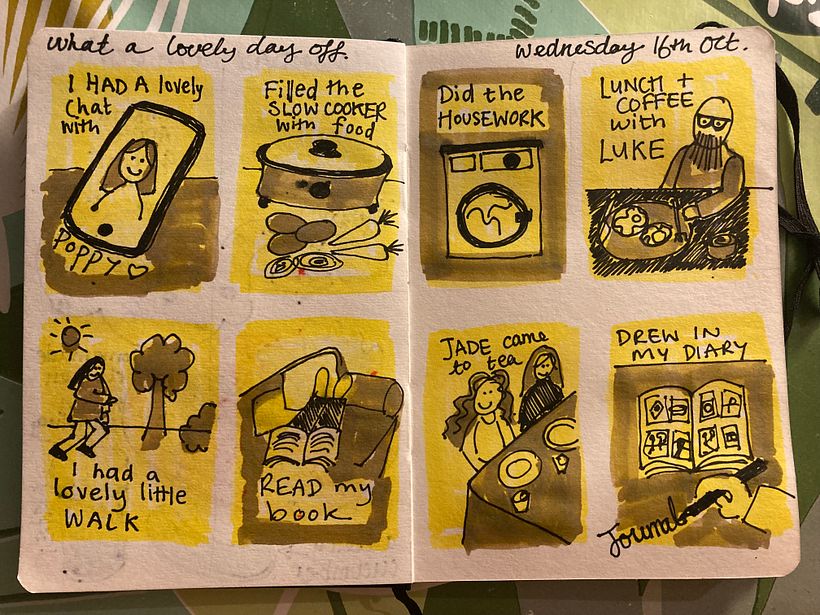 what a lovely day off.
wednesday 16th Oct.
I HAD A lovely
Chat
with
POPPY
Filled the
SLOW COOKER
with food
Did the
HOUSEWORK
LUNCH +
COFFEE
with
LUKE
I had a
lovely little
WALK
READ my
book
JADE came
to tea
DREW IN
MY DIARY
Journal